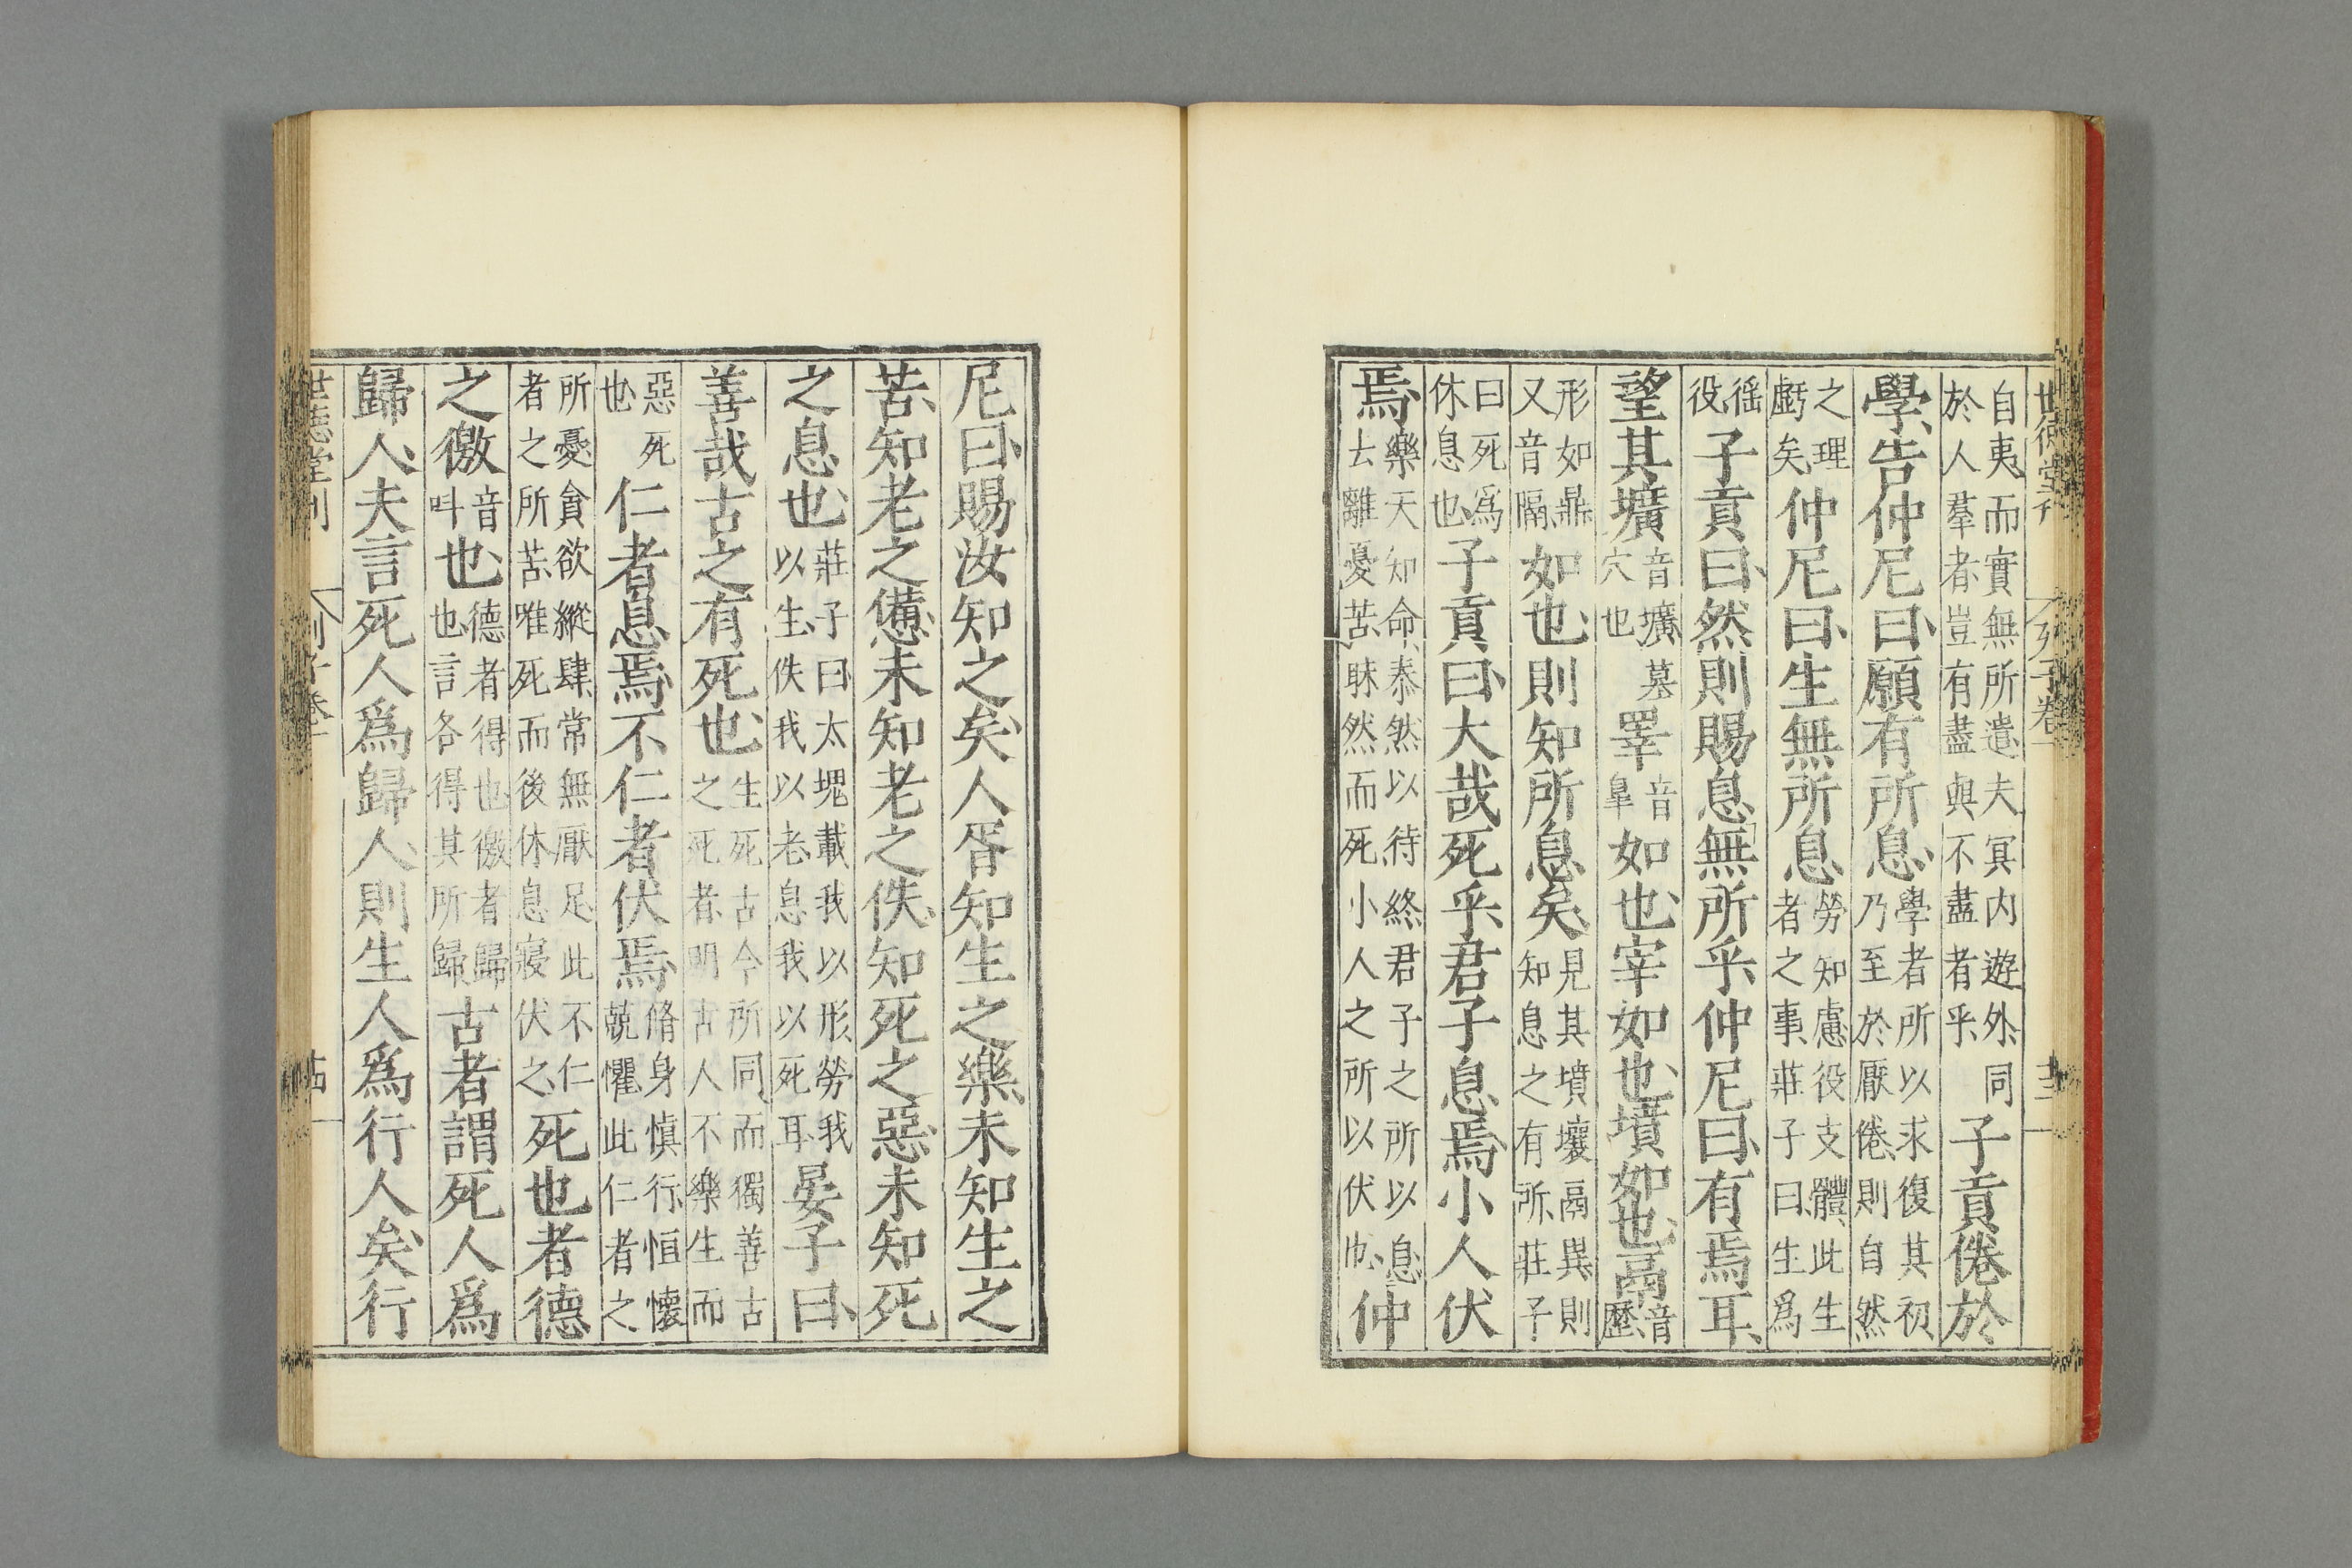 世德堂刊 列子卷一 十三
自夷而實無所遣夫冥内遊外同於人羣者豈有盡與不盡者乎子貢倦於
學告仲尼曰願有所息學者所以求復其初乃至於厭倦則自然
之理虧矣仲尼曰生無所息勞知慮役支體此生者之事莊子曰生爲
徭役子貢曰然則賜息無所乎仲尼曰有焉耳
望其壙音壙墓穴也睪音皐如也宰如也墳如也鬲音歷
形如鼎又音隔如也則知所息矣見其墳壤鬲異則知息之有所莊子
曰死爲休息也子貢曰大哉死乎君子息焉小人伏
焉樂天知命泰然以待終君子之所以息去離憂苦昧然而死小人之所以伏也仲
尼曰賜汝知之矣人胥知生之樂未知生之
苦知老之憊未知老之佚知死之惡未知死
之息也莊子曰大塊載我以形勞我以生佚我以老息我以死耳晏子曰
善哉古之有死也生死古今所同而獨善古之死者明古人不樂生而
惡死也仁者息焉不仁者伏焉脩身慎行恒懷兢懼此仁者之
所憂貪欲縱肆常無厭足此不仁者之所苦唯死而後休息寢伏之死也者德
之徼音叫也德者得也徼者歸也言各得其所歸古者謂死人爲
歸人夫言死人爲歸人則生人爲行人矣行
世德堂刊 列子卷一